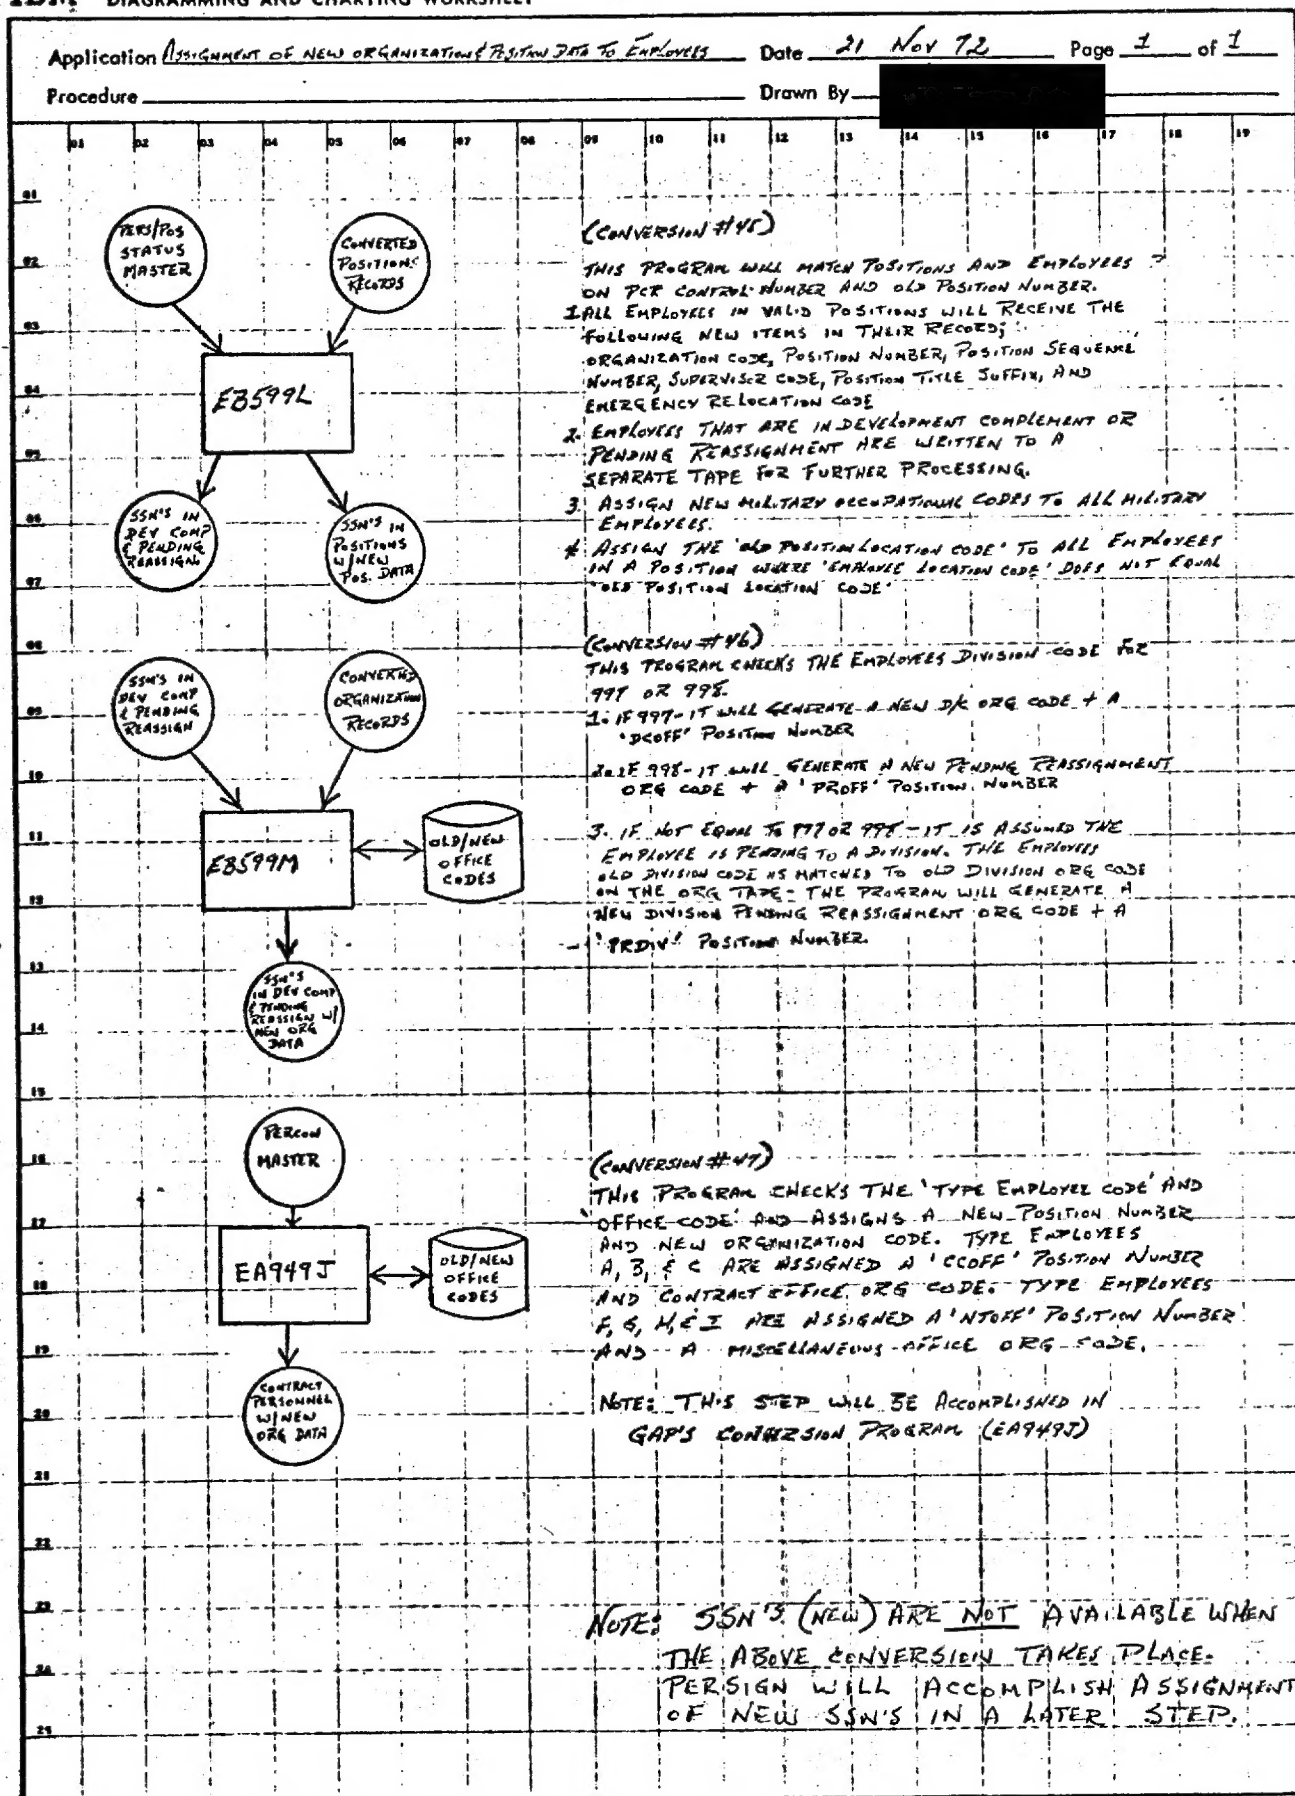 DIAGRAMMING AND CHARTING WORKSHEET
Application ASSIGNMENT OF NEW ORGANIZATION & POSITION DATA TO EMPLOYEES Date 21 NOV 72 Page 1 of 1
Procedure Drawn By
01 02 03 04 05 06 07 08 09 10 11 12 13 14 15 16 17 18 19
01
02
03
04
05
06
07
08
09
10
11
12
13
14
15
16
17
18
19
20
21
22
23
24
25
PERS/POS
STATUS
MASTER
CONVERTED
POSITIONS
RECORDS
EB599L
SSN'S IN
DEV COMP
& PENDING
REASSIGN
SSN'S IN
POSITIONS
W/NEW
POS. DATA
(CONVERSION #45)
THIS PROGRAM WILL MATCH POSITIONS AND EMPLOYEES
ON PCR CONTROL NUMBER AND OLD POSITION NUMBER.
1. ALL EMPLOYEES IN VALID POSITIONS WILL RECEIVE THE
FOLLOWING NEW ITEMS IN THEIR RECORD;
ORGANIZATION CODE, POSITION NUMBER, POSITION SEQUENCE
NUMBER, SUPERVISOR CODE, POSITION TITLE SUFFIX, AND
EMERGENCY RELOCATION CODE
2. EMPLOYEES THAT ARE IN DEVELOPMENT COMPLEMENT OR
PENDING REASSIGNMENT ARE WRITTEN TO A
SEPARATE TAPE FOR FURTHER PROCESSING.
3. ASSIGN NEW MILITARY OCCUPATIONAL CODES TO ALL MILITARY
EMPLOYEES.
4. ASSIGN THE 'OLD POSITION LOCATION CODE' TO ALL EMPLOYEES
IN A POSITION WHERE 'EMPLOYEE LOCATION CODE' DOES NOT EQUAL
'OLD POSITION LOCATION CODE'
SSN'S IN
DEV COMP
& PENDING
REASSIGN
CONVERTED
ORGANIZATION
RECORDS
EB599M
OLD/NEW
OFFICE
CODES
SSN'S
IN DEV COMP
& PENDING
REASSIGN W/
NEW ORG
DATA
(CONVERSION #46)
THIS PROGRAM CHECKS THE EMPLOYEES DIVISION CODE FOR
997 OR 998.
1. IF 997 - IT WILL GENERATE A NEW D/C ORG CODE + A
'DCOFF' POSITION NUMBER
2. IF 998 - IT WILL GENERATE A NEW PENDING REASSIGNMENT
ORG CODE + A 'PROFF' POSITION NUMBER
3. IF NOT EQUAL TO 997 OR 998 - IT IS ASSUMED THE
EMPLOYEE IS PENDING TO A DIVISION. THE EMPLOYEES
OLD DIVISION CODE IS MATCHED TO OLD DIVISION ORG CODE
ON THE ORG TAPE - THE PROGRAM WILL GENERATE A
NEW DIVISION PENDING REASSIGNMENT ORG CODE + A
'PRDIV' POSITION NUMBER.
PERCON
MASTER
EA949J
OLD/NEW
OFFICE
CODES
CONTRACT
PERSONNEL
W/NEW
ORG DATA
(CONVERSION #47)
THIS PROGRAM CHECKS THE 'TYPE EMPLOYEE CODE' AND
'OFFICE CODE' AND ASSIGNS A NEW POSITION NUMBER
AND NEW ORGANIZATION CODE. TYPE EMPLOYEES
A, B, & C ARE ASSIGNED A 'CCOFF' POSITION NUMBER
AND CONTRACT OFFICE ORG CODE. TYPE EMPLOYEES
F, G, H, & I ARE ASSIGNED A 'NTOFF' POSITION NUMBER
AND A MISCELLANEOUS OFFICE ORG CODE.
NOTE: THIS STEP WILL BE ACCOMPLISHED IN
GAP'S CONVERSION PROGRAM (EA949J)
NOTE: SSN'S (NEW) ARE NOT AVAILABLE WHEN
THE ABOVE CONVERSION TAKES PLACE.
PERSIGN WILL ACCOMPLISH ASSIGNMENT
OF NEW SSN'S IN A LATER STEP.